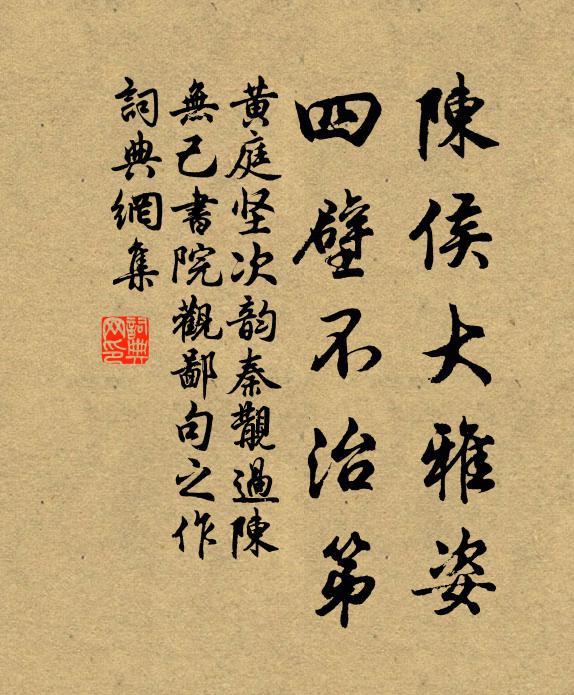 陳侯大雅姿
四壁不治第
黄庭坚次韵秦覯過陳
無己書院觀鄙句之作
詞典網集
詞典网印